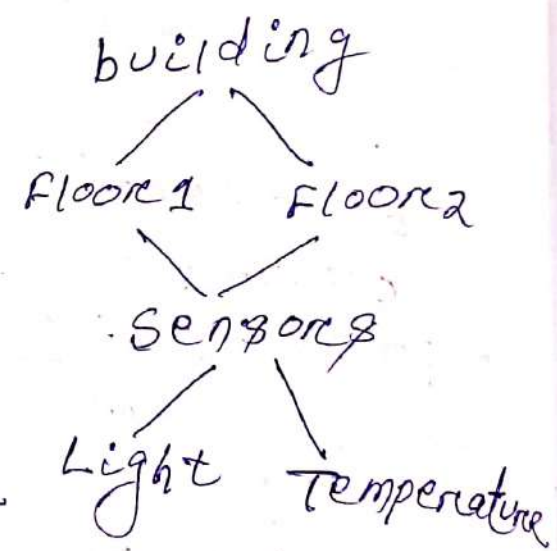 building
Floor1 Floor2
Sensors
Light Temperature